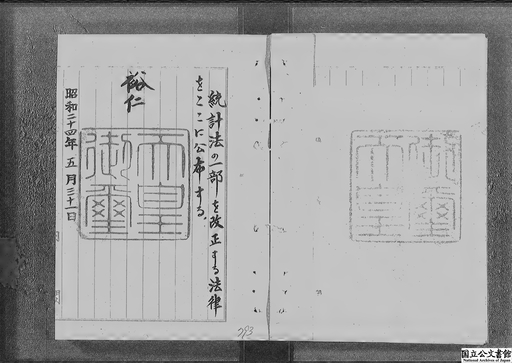 統計法の一部を改正する法律
をここに公布する。
裕仁
天皇
御璽
昭和二十四年五月三十一日
293
国立公文書館
National Archives of Japan